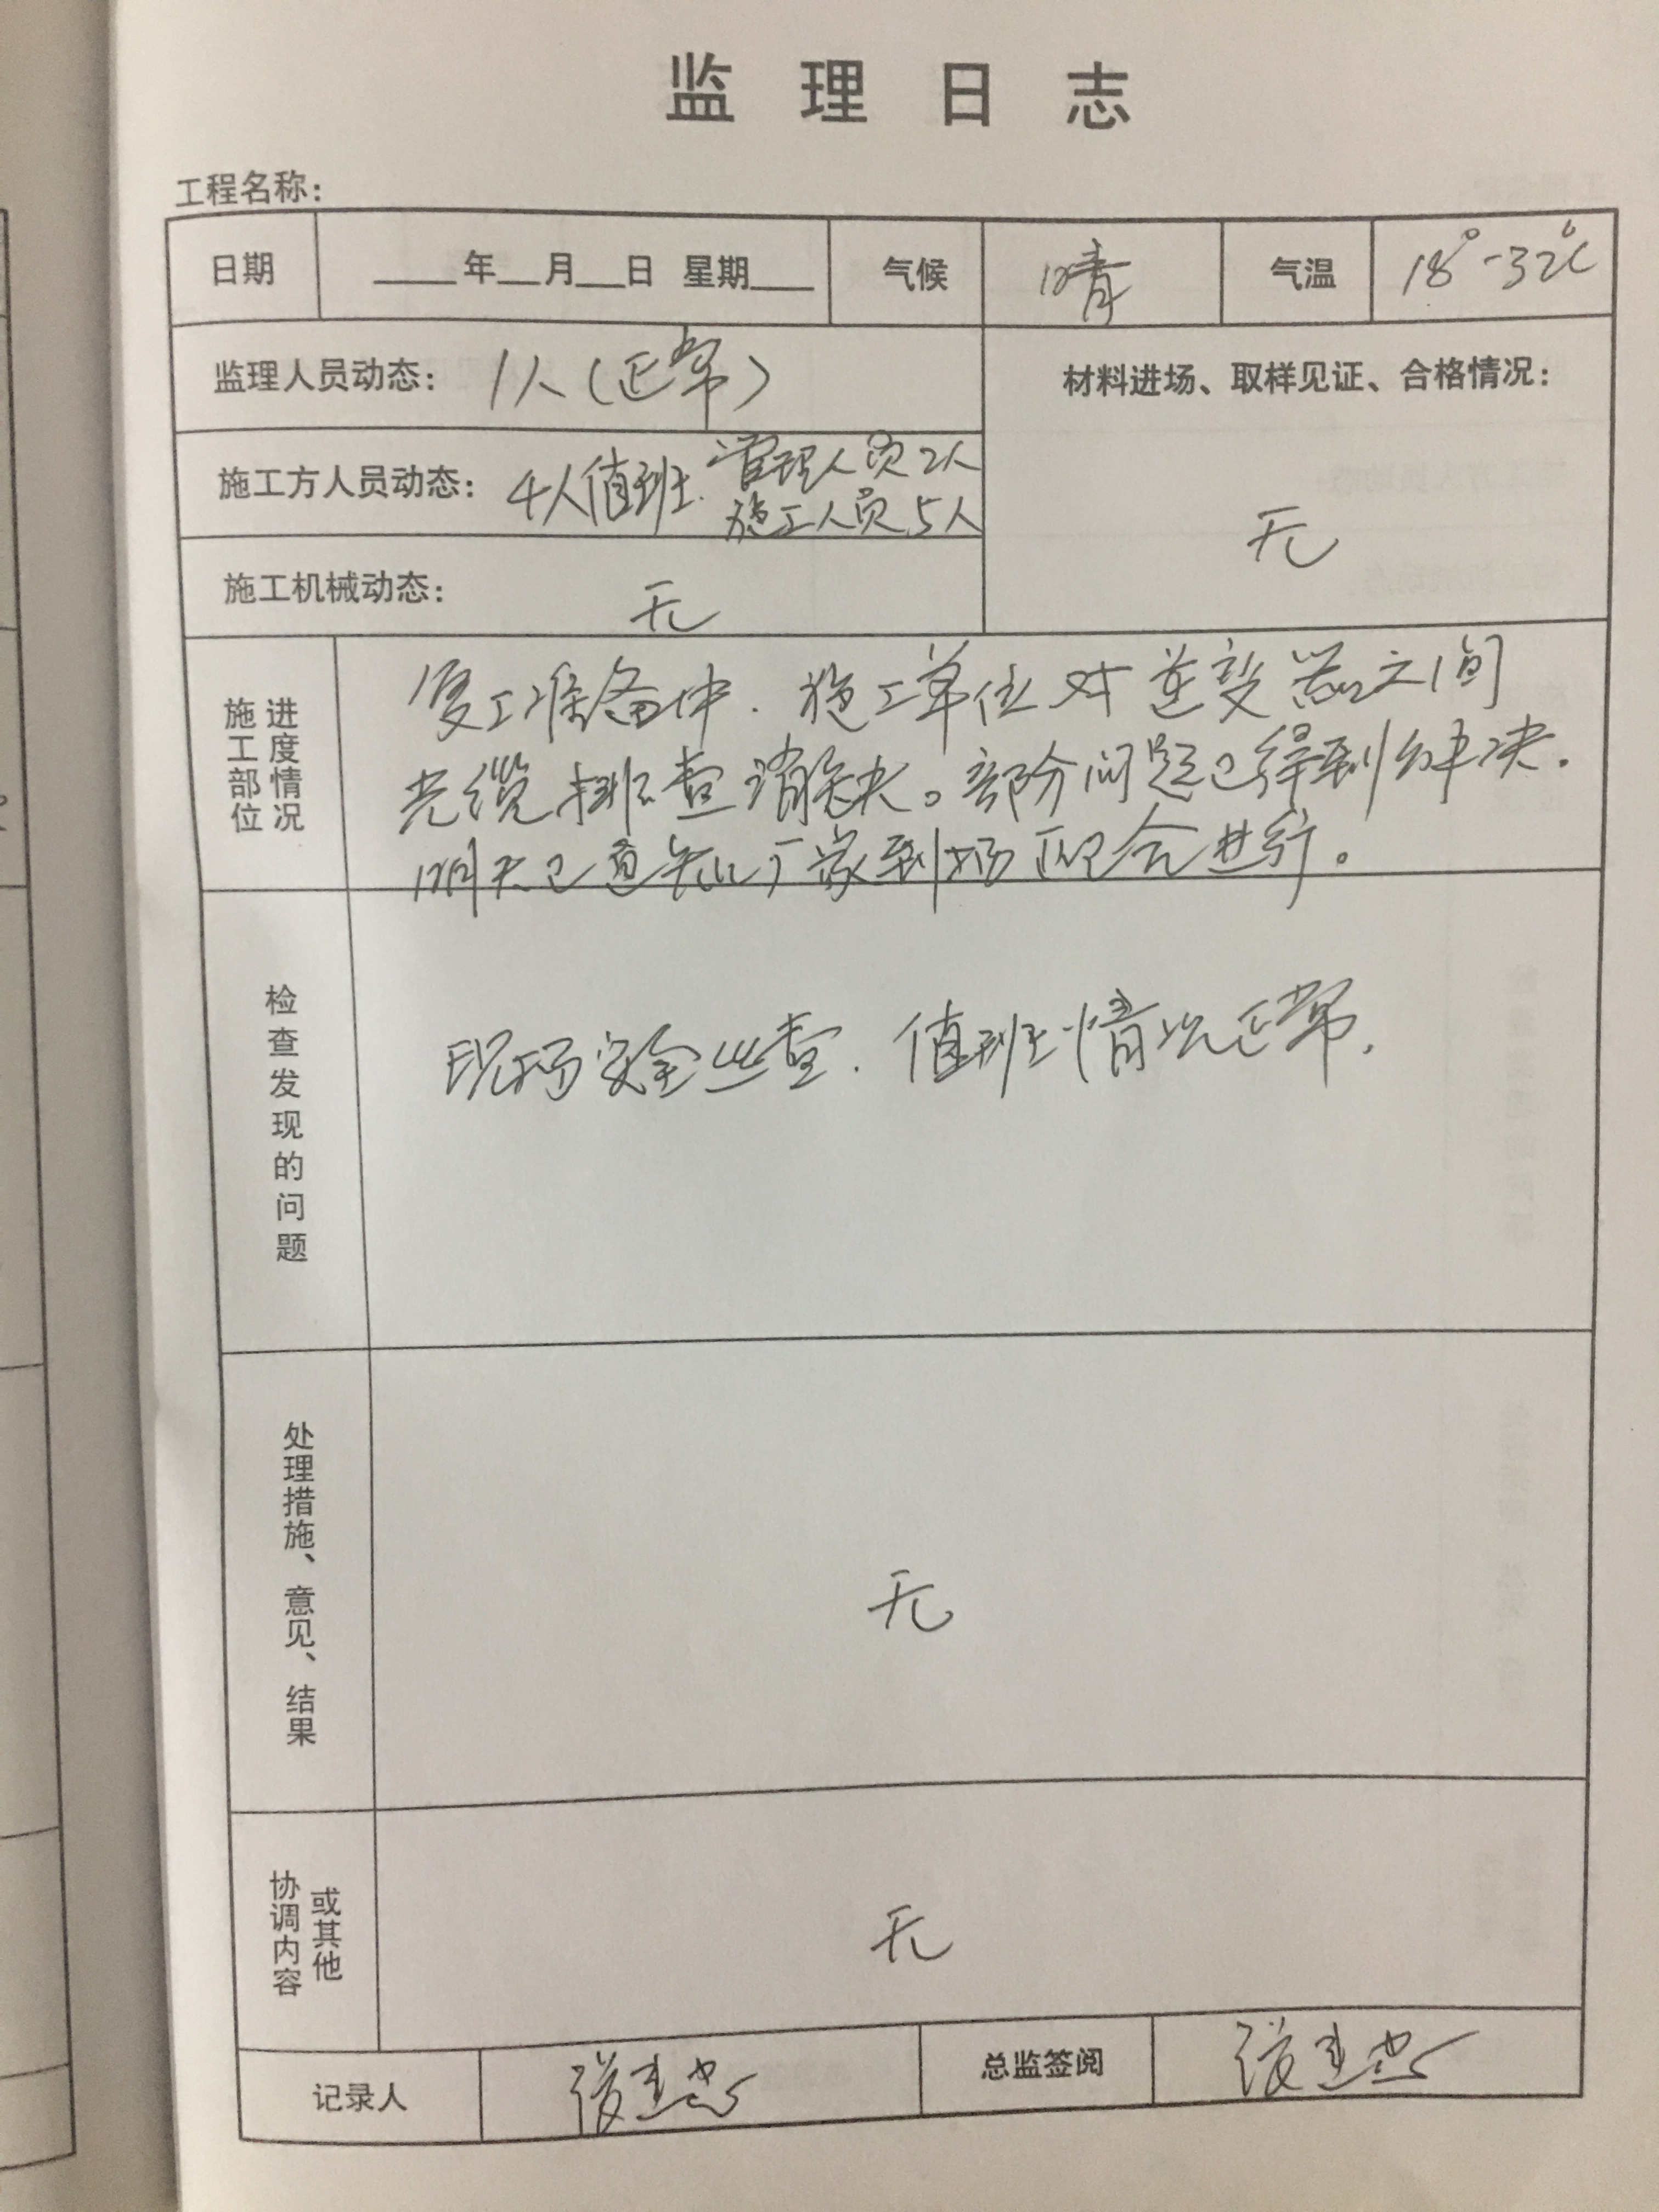 监理日志
工程名称：
日期 ____年__月__日 星期____ 气候 晴 气温 18°-32℃
监理人员动态： 1人（正常）
材料进场、取样见证、合格情况：
施工方人员动态： 4人值班. 管理人员2人
施工人员5人
无
施工机械动态： 无
施工部位
进度情况
复工准备中. 施工单位对逆变器之间
光缆排查消缺。部分问题已得到解决.
明天已通知厂家到场配合进行。
检查发现的问题
现场安全巡查. 值班情况正常.
处理措施、意见、结果
无
协调内容
或其他
无
记录人 张建忠 总监签阅 张建忠